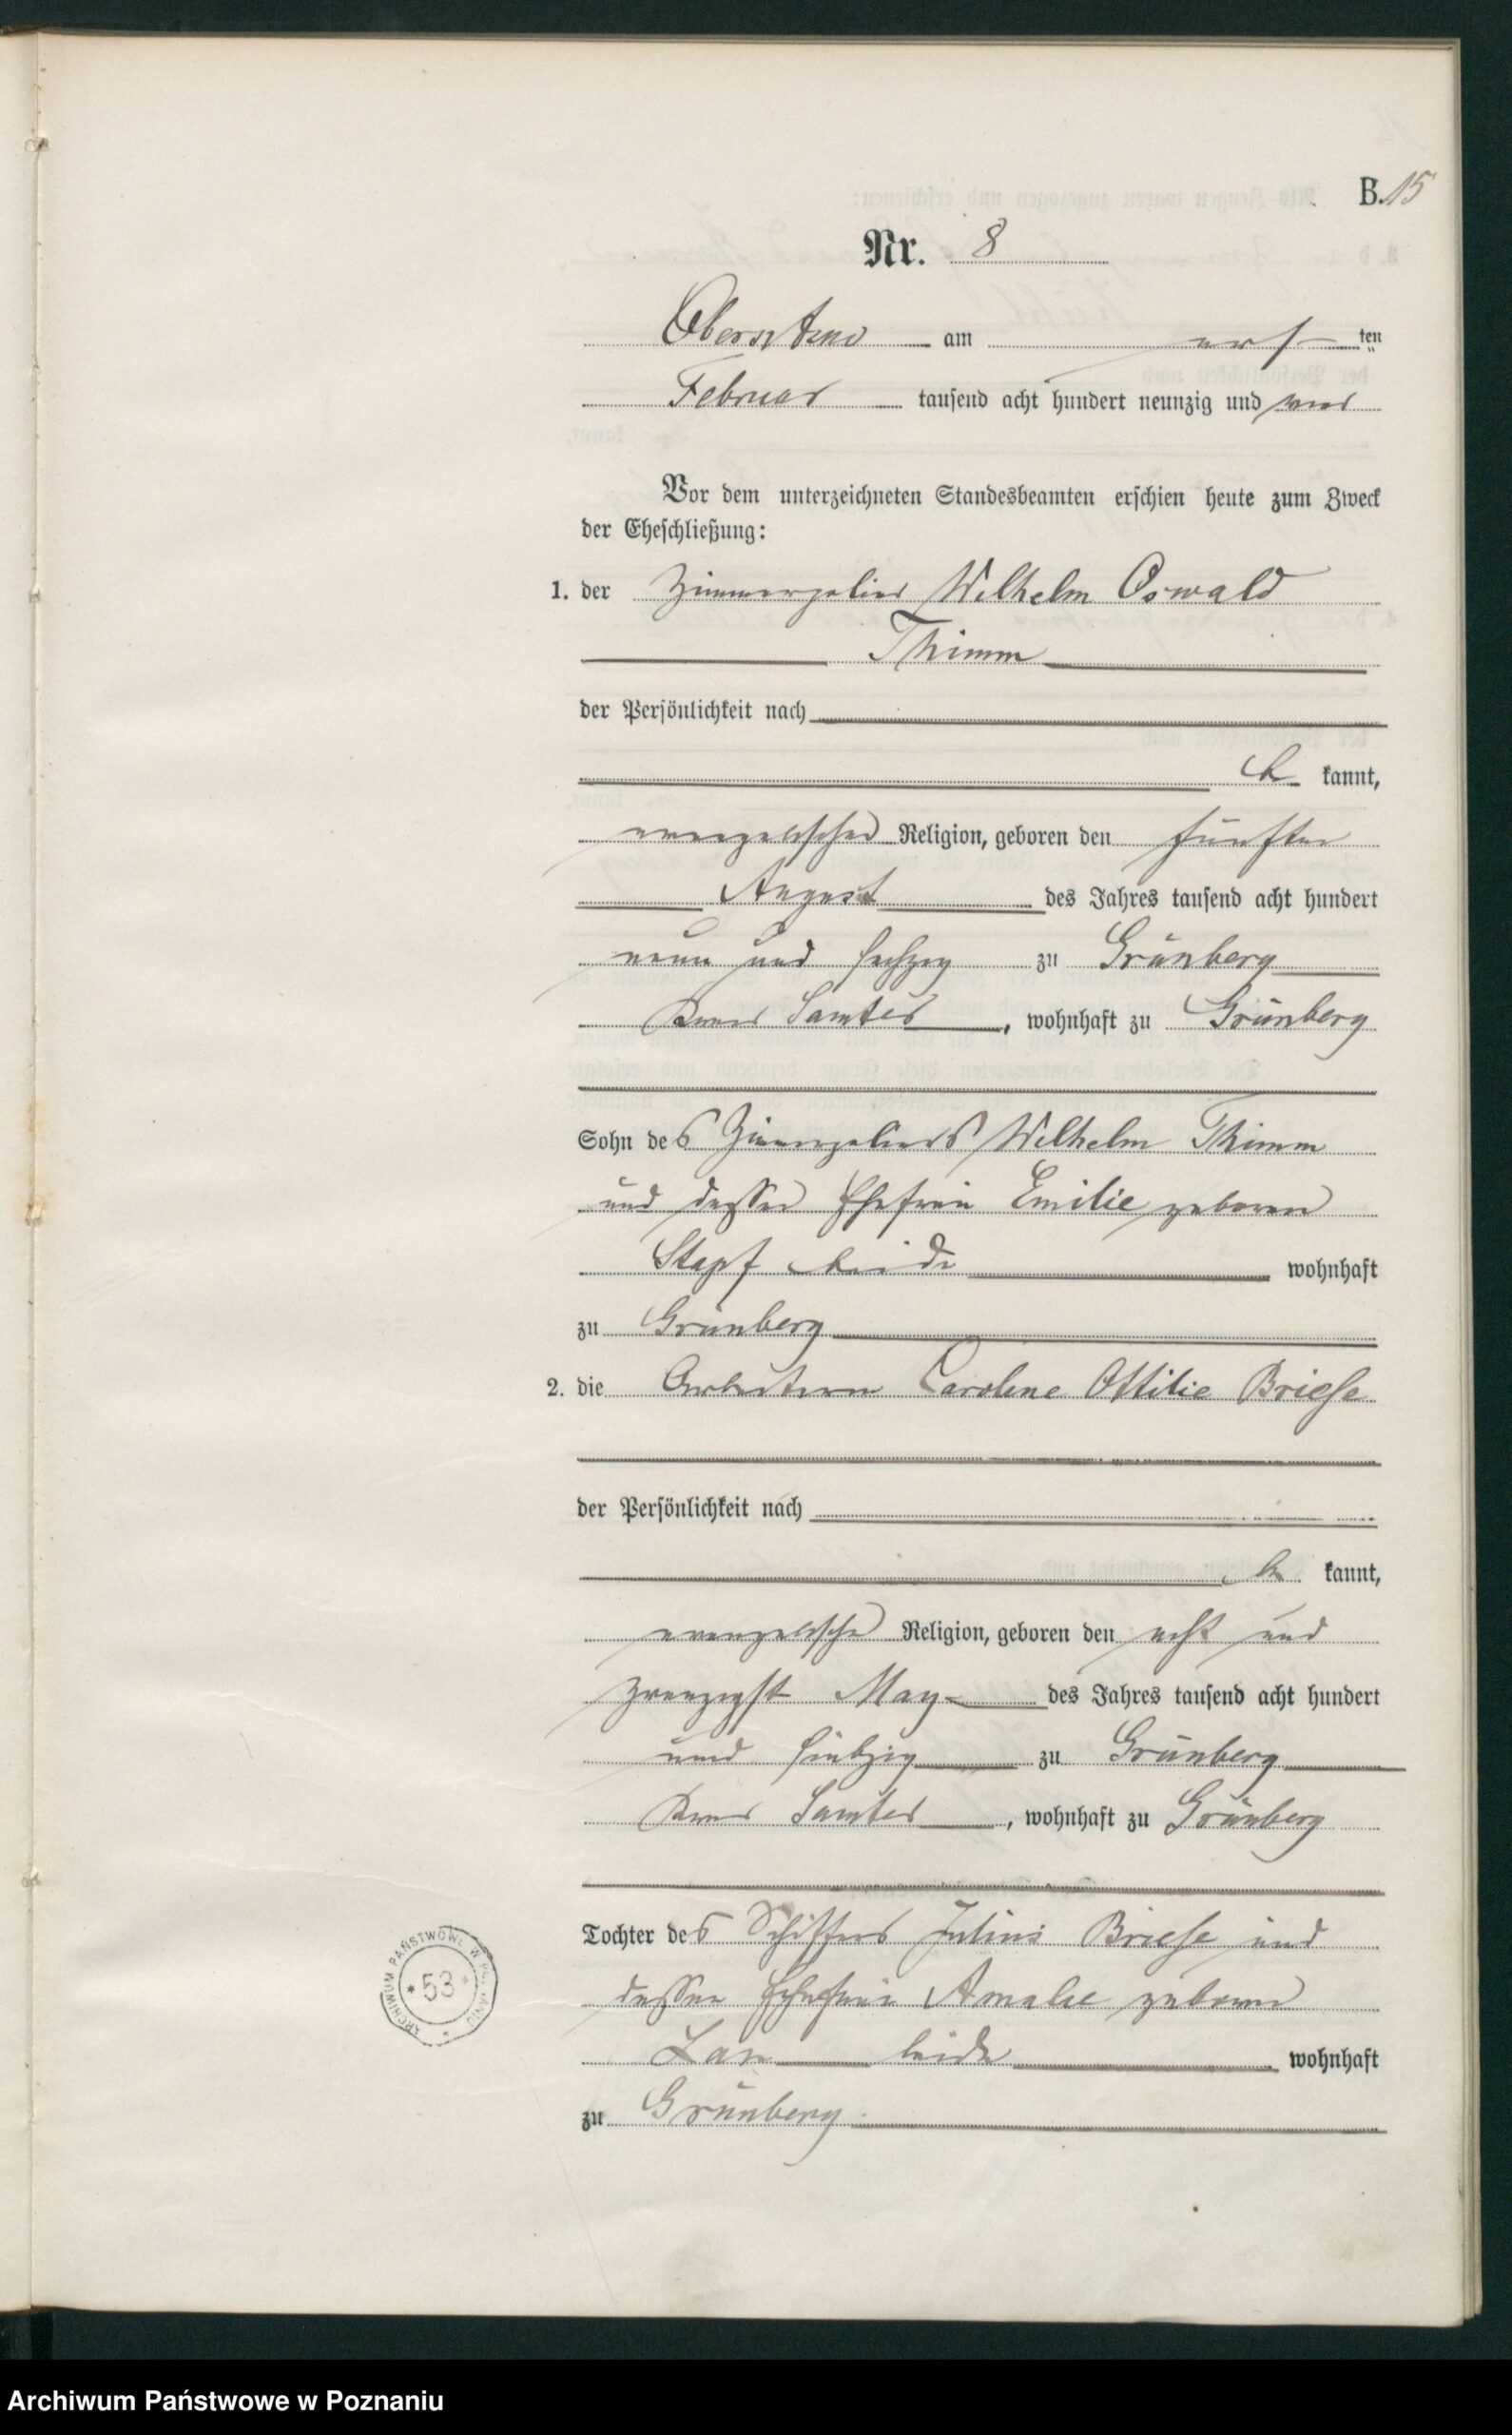 B. 15
Nr. 8
Obersitzko am erſten
Februar tauſend acht hundert neunzig und vier
Vor dem unterzeichneten Standesbeamten erſchien heute zum Zweck
der Eheſchließung:
1. der Zimmerpolier Wilhelm Oswald
Thimm
der Perſönlichkeit nach
be kannt,
evangeliſcher Religion, geboren den fünften
August des Jahres tauſend acht hundert
neun und ſechzig zu Grünberg
Kreis Samter, wohnhaft zu Grünberg
Sohn des Zimmerpoliers Wilhelm Thimm
und deſſen Ehefrau Emilie geborene
Stapf beide wohnhaft
zu Grünberg
2. die Arbeiterin Caroline Ottilie Brieſe
der Perſönlichkeit nach
be kannt,
evangeliſcher Religion, geboren den acht und
zwanzigſt May des Jahres tauſend acht hundert
und ſiebzig zu Grünberg
Kreis Samter, wohnhaft zu Grünberg
Tochter des Schiffers Julius Brieſe und
deſſen Ehefrau Amalie geborene
beide wohnhaft
zu Grünberg
ARCHIWUM PAŃSTWOWE W POZNANIU
* 53 *
Archiwum Państwowe w Poznaniu